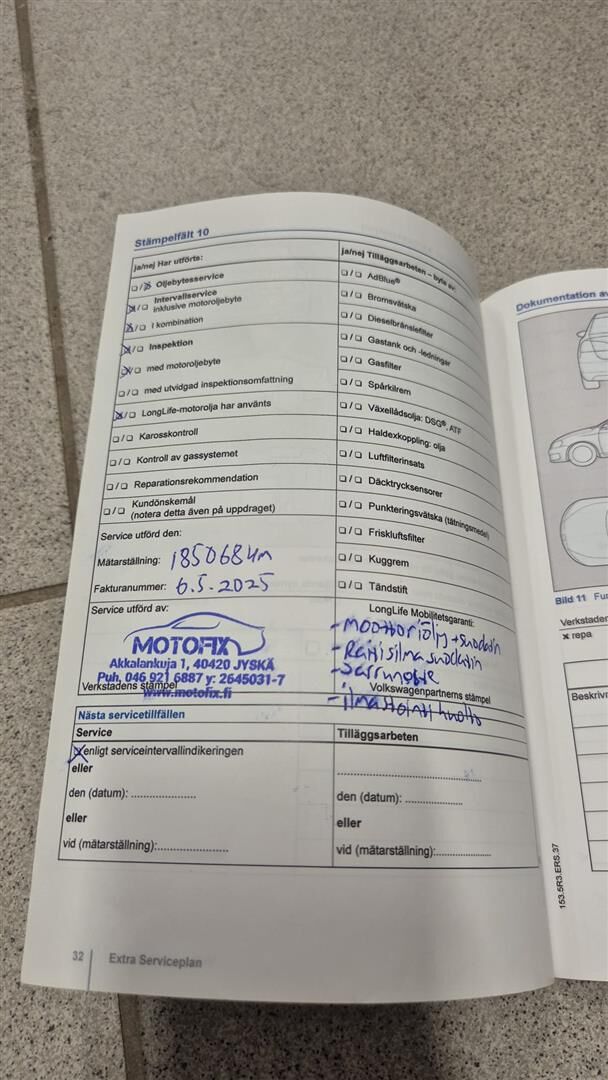 Stämpelfält 10
ja/nej Har utförts:
☐/☒ Oljebytesservice
☒/☐ Intervallservice
inklusive motoroljebyte
☒/☐ I kombination
☒/☐ Inspektion
☒/☐ med motoroljebyte
☐/☐ med utvidgad inspektionsomfattning
☒/☐ LongLife-motorolja har använts
☐/☐ Karosskontroll
☐/☐ Kontroll av gassystemet
☐/☐ Reparationsrekommendation
☐/☐ Kundönskemål
(notera detta även på uppdraget)
Service utförd den:
Mätarställning: 185068 km
Fakturanummer: 6.5.2025
Service utförd av:
MOTOFIX
Akkalankuja 1, 40420 JYSKÄ
Puh, 046 921 6887 y: 2645031-7
Verkstadens stämpel
www.motofix.fi
ja/nej Tilläggsarbeten – byte av:
☐/☐ AdBlue®
☐/☐ Bromsvätska
☐/☐ Dieselbränslefilter
☐/☐ Gastank och -ledningar
☐/☐ Gasfilter
☐/☐ Spårkilrem
☐/☐ Växellådsolja: DSG®, ATF
☐/☐ Haldexkoppling: olja
☐/☐ Luftfilterinsats
☐/☐ Däcktrycksensorer
☐/☐ Punkteringsvätska (tätningsmedel)
☐/☐ Friskluftsfilter
☐/☐ Kuggrem
☐/☐ Tändstift
LongLife Mobilitetsgaranti:
- moottoriöljy + suodatin
- Raitisilmasuodatin
- Jarruneste
Volkswagenpartnerns stämpel
- ilmastointihuolto
Nästa servicetillfällen
Service
☒ enligt serviceintervallindikeringen
eller
den (datum): ....................
eller
vid (mätarställning):.......................
Tilläggsarbeten
.............................................
den (datum): ..................
eller
vid (mätarställning):..................
32 Extra Serviceplan
Dokumentation av
Bild 11
Verkstaden
× repa
153.5R3.ERS.37